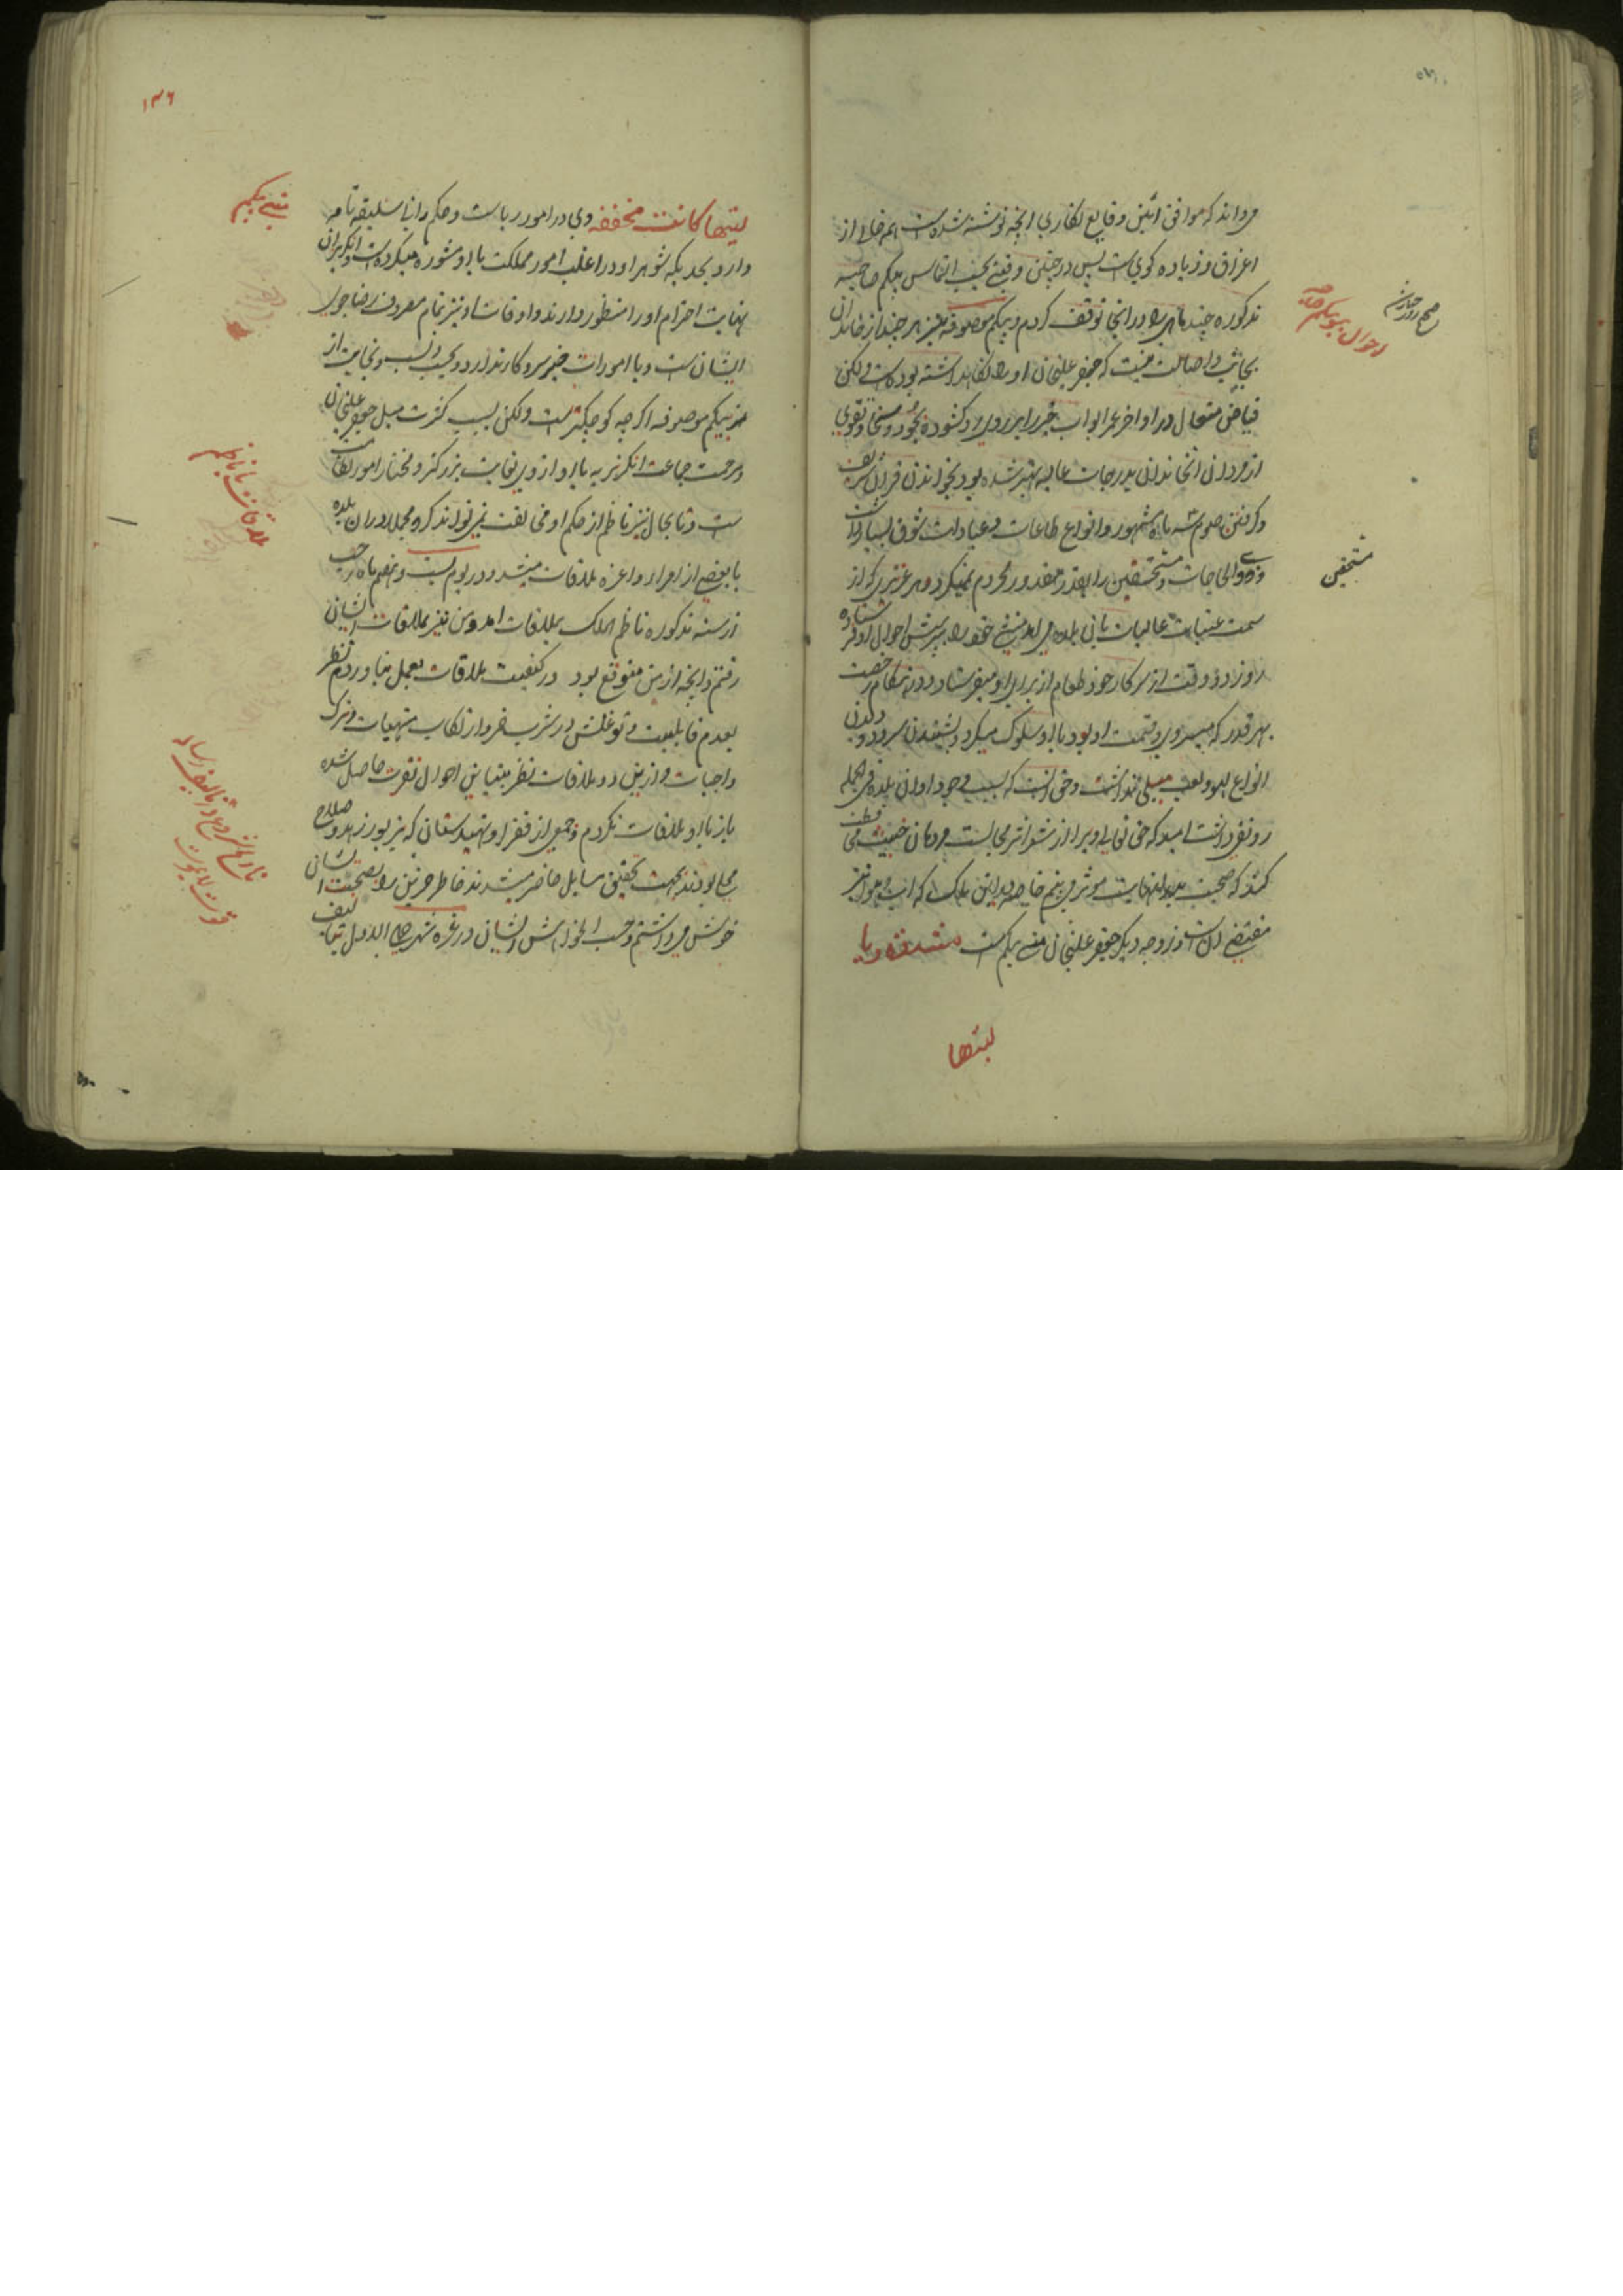 میداند که موافق آئین وقایع نگاری آنچه نوشته شده است همه خالی از
اغراق و زیاده گوئی است پس در چنین وقتی بحسب التماس بیگم صاحبه
مذکوره چند ماهی را در آنجا توقف کردم و بیگم موصوفه نیز هر چند از خاندان
نجابت و اصالت نیست که جعفر علیخان او را نگاهداشته بوده است ولکن
فیاض متعال در اواخر عمر ابواب خیر را بر روی او گشوده بجود و سخا و تقوی
از مردان آنخاندان بدرجات عالیه بهتر شده بود بخواندن قرآن شریف
و گرفتن صوم سه ماه مشهور و انواع طاعات و عبادات شوق بسیار داشت
و ذوی الحاجات و مستحقین را بقدر مقدور محروم نمیکرد و هر عزیزی که از
سمت عتبات عالیات بآن بلده می آمد منشی خود را بپرسش احوال او فرستاده
روز دو وقت از سرکار خود طعام از برای او میفرستاد و در هنگام رخصت
بهر قدر که میسر وی و قسمت او بود با او سلوک میکرد و بشنیدن سرود و دیدن
انواع لهو و لعب میلی نداشت و حق آنست که بسبب وجود او آن بلده فی الجمله
رونقی داشت امید که حق تعالی او را از شر مجالست مردمان خبیث فطرت
کند که صحبت بد را بنهایت موثر می بینم خاصه در این ملک که آب و هوا نیز
مقتضی آن است و زوجه دیگر جعفر علیخان منی بیگم است
لیتها
احوال ببو بیگم صاحبه
مستحقین
۱۳۶
لیتها کانت مخففه وی در امور ریاست و حکم رانی سلیقه تامه
دارد بحدیکه شوهر او در اغلب امور مملکت با او مشوره میکرده است و انگریزان
نهایت احترام او را منظور دارند و اوقات او نیز تمام مصروف رضاجوئی
ایشان است و با امورات خیر سر و کار ندارد و بحسب و نسب و نجابت از
بیگم موصوفه اگر چه کوچکتر است ولکن بسبب کثرت میل جعفر علیخان
و مرحمت جماعت انگریزیه با او از وی بغایت بزرگتر و مختار امور نظامت
است و تا بحال نیز ناظم از حکم او مخالفت نمی تواند کرد مجملا در آن بلده
با بعضی از امرا و اعزه ملاقات میشد و در یوم بیست و نهم ماه رجب
از سنه مذکوره ناظم الملک بملاقات آمد و من نیز بملاقات ایشان
رفتم و آنچه از من متوقع بود در کیفیت ملاقات بعمل نیاوردم نظر
بعدم قابلیت و توغلش در شرب خمر و ارتکاب منهیات و ترک
واجبات و از این دو ملاقات نظر بتباین احوال نفرت حاصل شده
باز با او ملاقات نکردم و جمعی از فقرا و تهیدستان که بزیور زهد و صلاح
محلی بودند بجهت تحقیق مسایل حاضر میشدند خاطر حزین را بصحبت ایشان
خوش میداشتم و حسب الخواهش ایشان در غره شهر جمادی الاول بتالیف
منی بیگم
ملاقات با ناظم